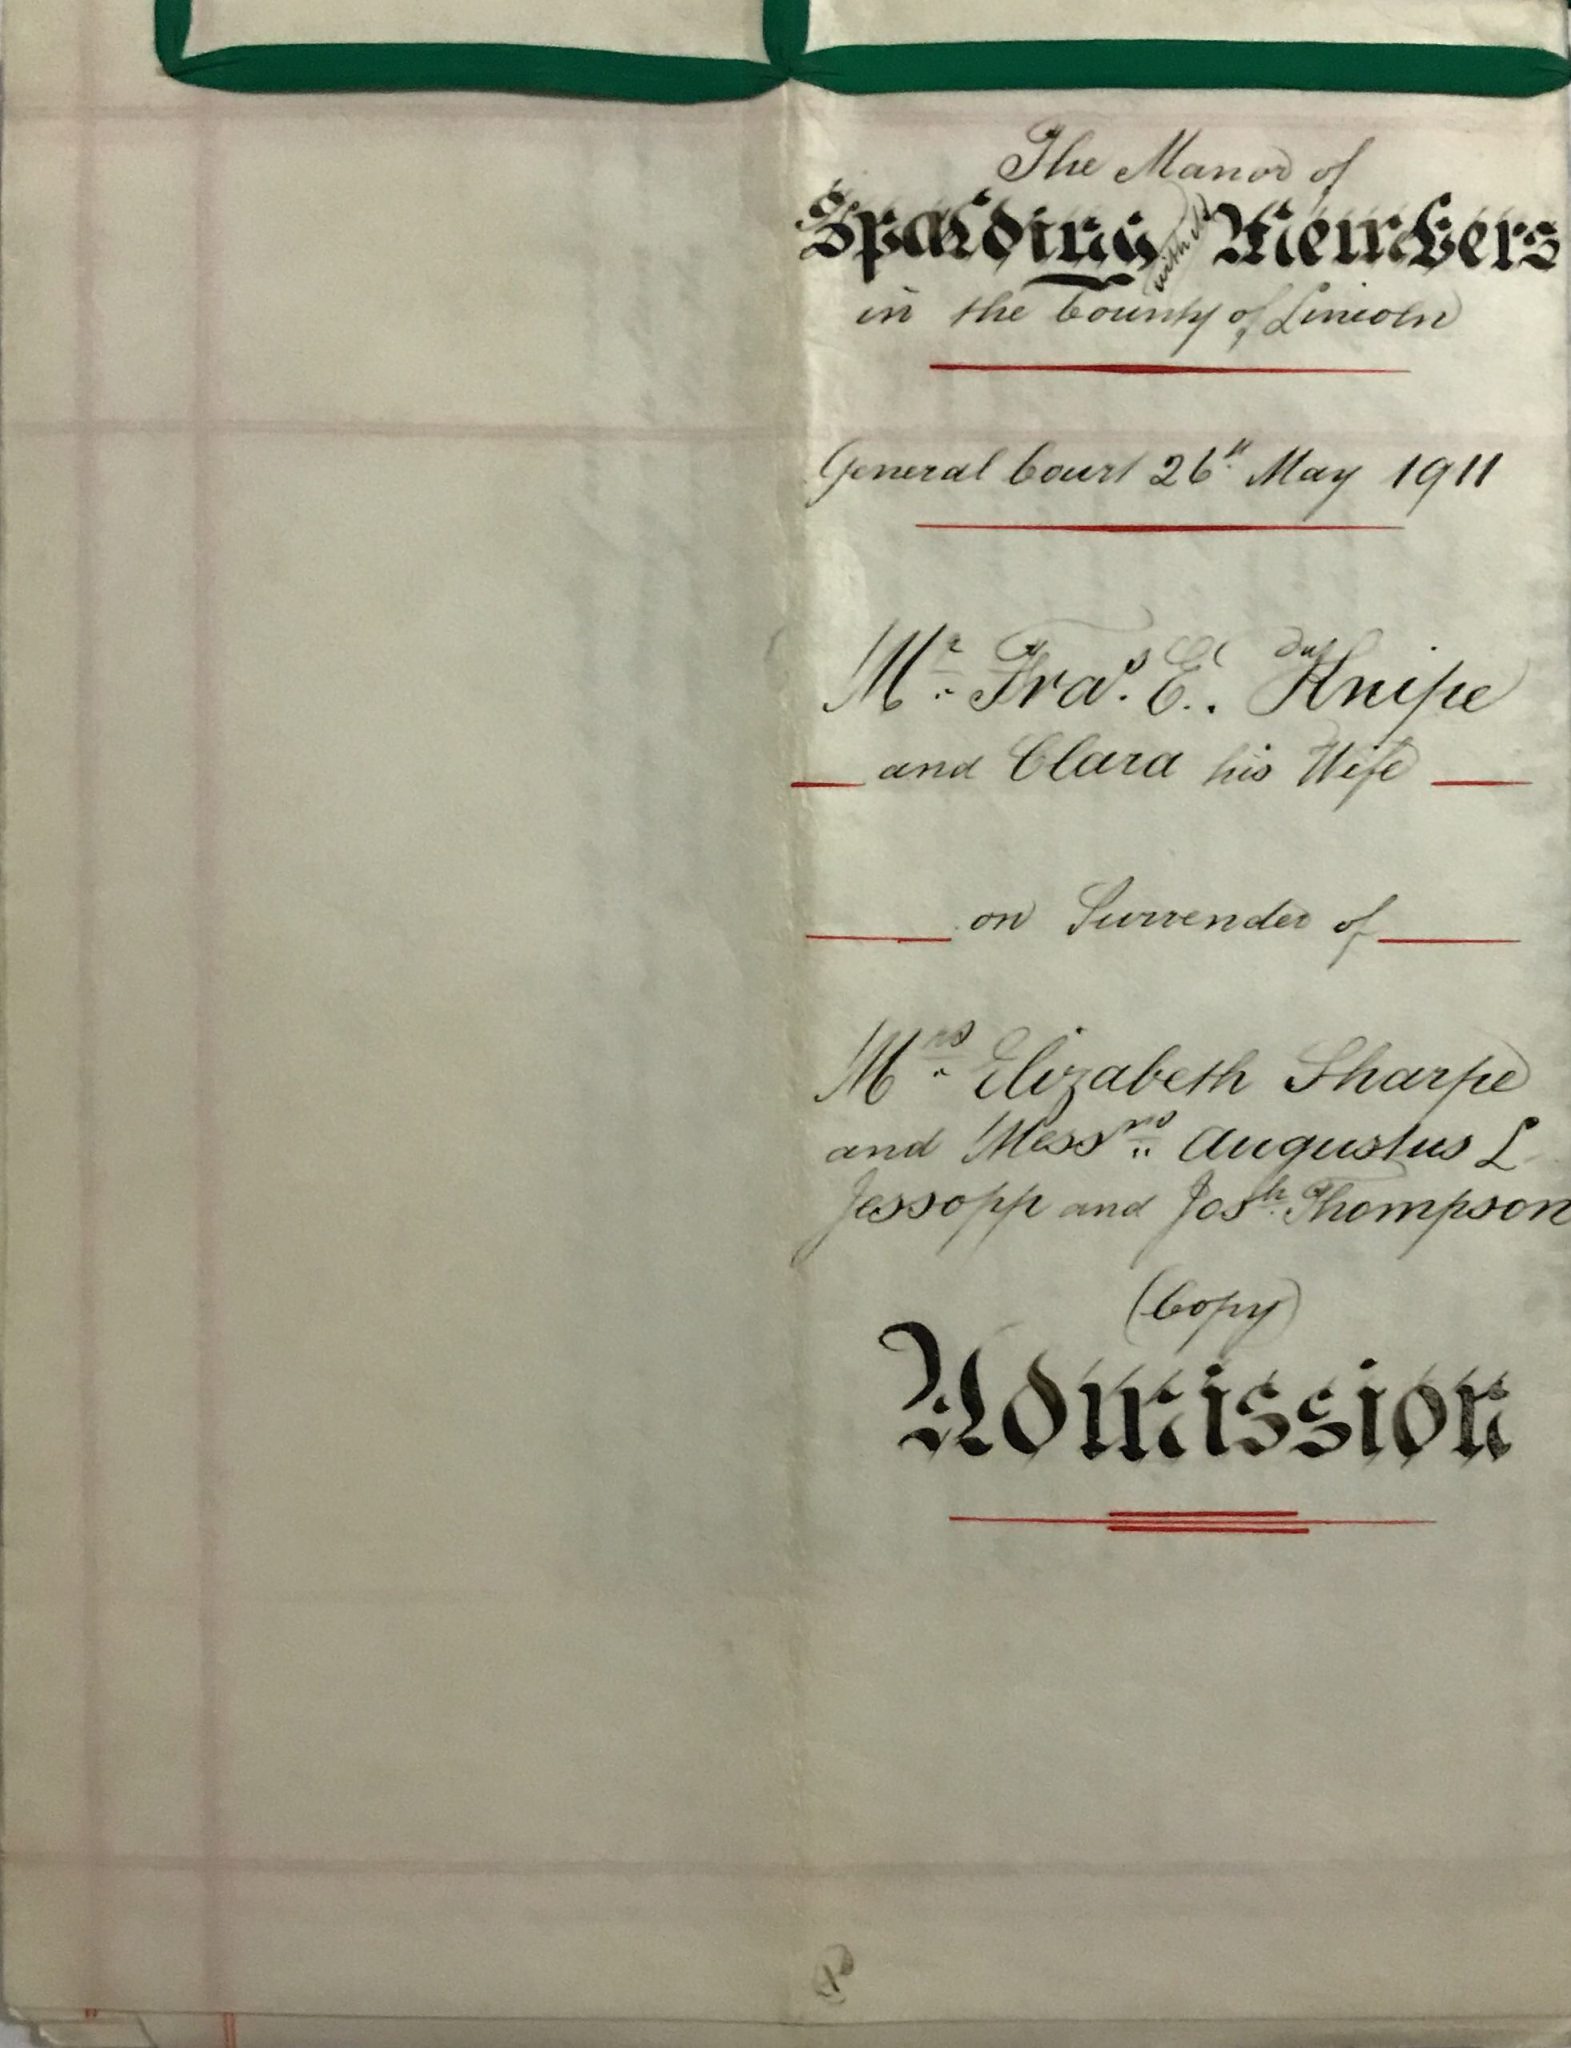 The Manor of
Spalding with its Members
in the County of Lincoln
General Court 26th May 1911
Mr Fras. E. Knipe
and Clara his Wife
on Surrender of
Mrs Elizabeth Sharpe
and Messrs Augustus L
Jessopp and Josh Thompson
(Copy)
Admission